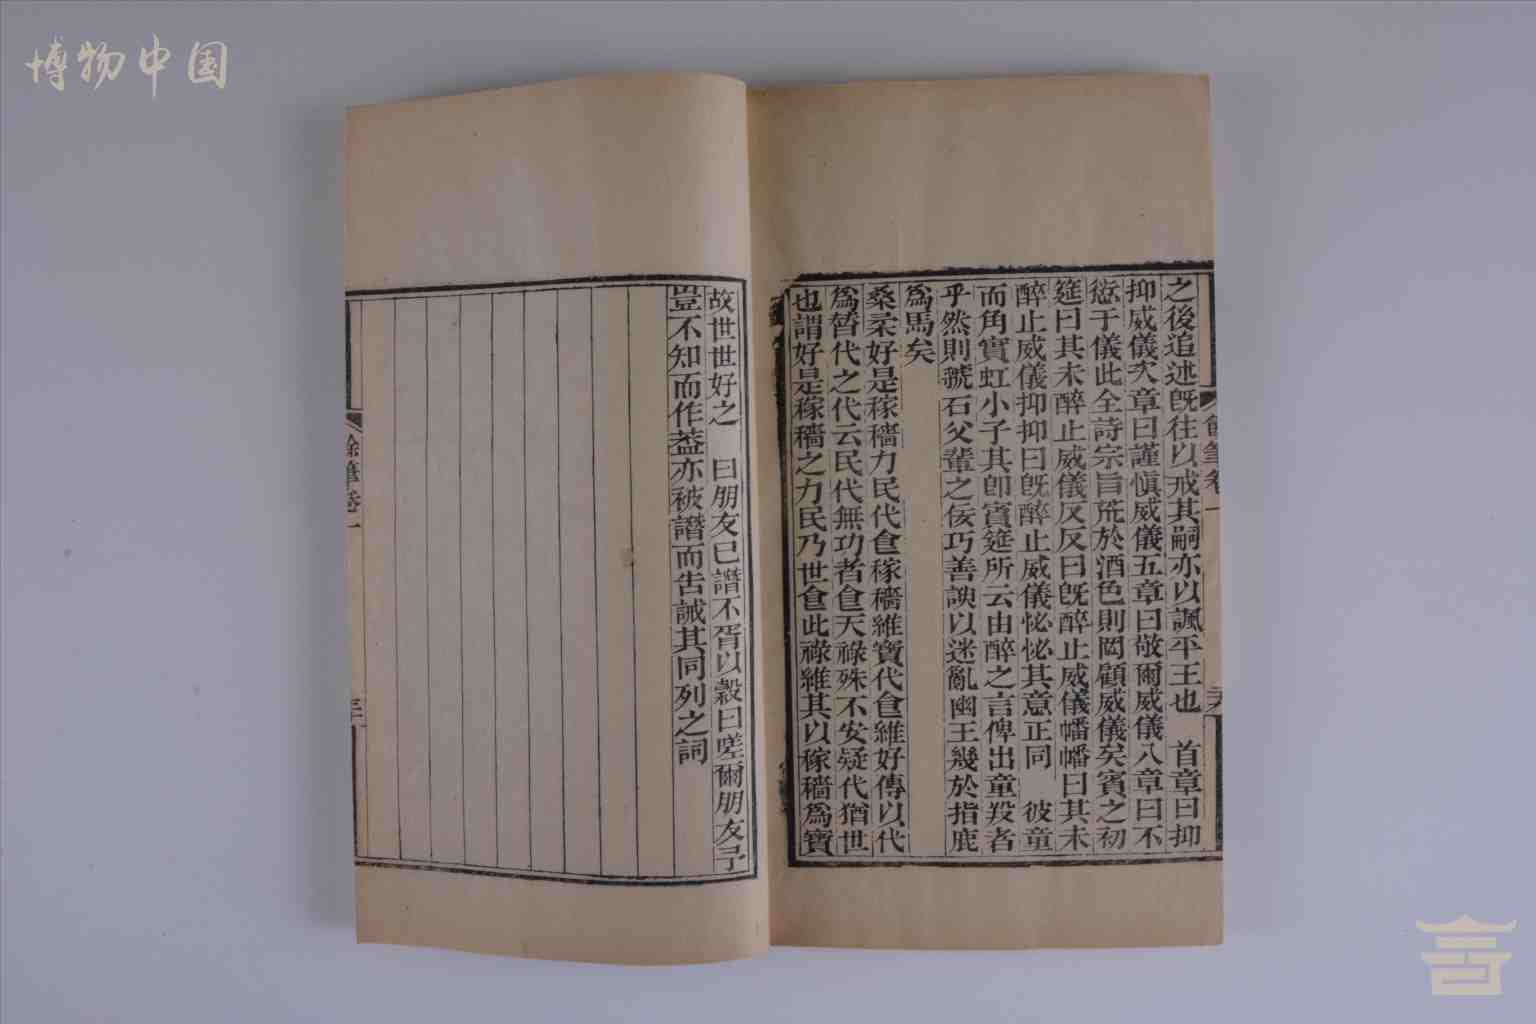 博物中国
之後追述旣往以戒其嗣亦以諷平王也　首章曰抑
抑威儀次章曰謹愼威儀五章曰敬爾威儀八章曰不
愆于儀此全詩宗旨荒於酒色則罔顧威儀矣賓之初
筵曰其未醉止威儀反反曰旣醉止威儀幡幡曰其未
醉止威儀抑抑曰旣醉止威儀怭怭其意正同　彼童
而角實虹小子其卽賓筵所云由醉之言俾出童羖者
乎然則虢石父輩之佞巧善諛以迷亂幽王幾於指鹿
爲馬矣
桑柔好是稼穡力民代食稼穡維寶代食維好傳以代
爲替代之代云民代無功者食天祿殊不安疑代猶世
也謂好是稼穡之力民乃世食此祿維其以稼穡爲寶
故世世好之　曰朋友已譖不胥以穀曰嗟爾朋友予
豈不知而作葢亦被譖而吿誡其同列之詞
餘筆卷一